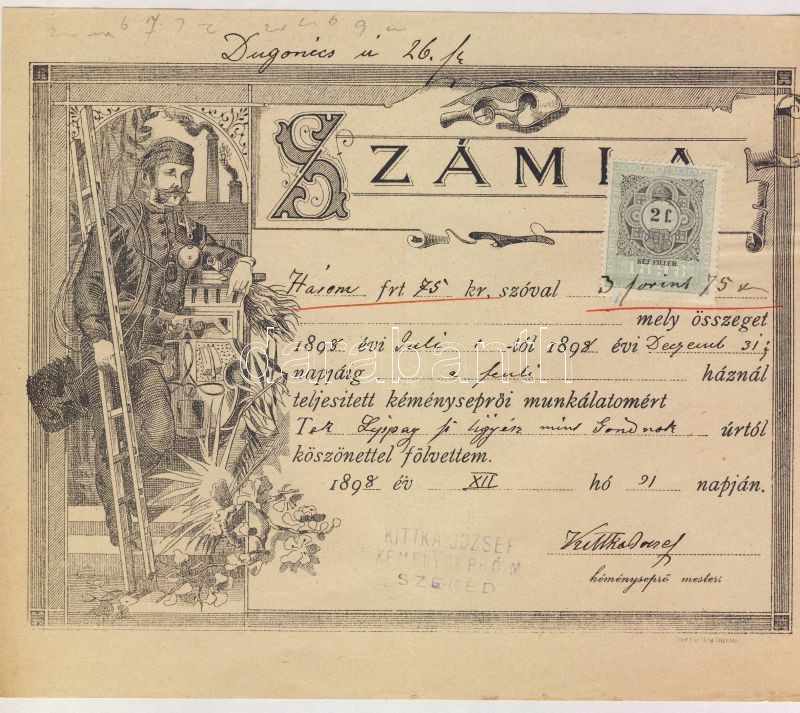 Dugonics u 26. sz
SZÁMLA
2 f.
KÉT FILLÉR
1898
Három frt 75 kr. szóval 3 forint 75 kr
mely összeget
1898 évi Juli 1 -től 1898 évi Dezemb 31
napjáig a fenti háznál
teljesitett kéményseprői munkálatomért
Tek ügyész mint Gondnok úrtól
köszönettel fölvettem.
1898 év XII hó 31 napján.
Kittka József
KITTKA JÓZSEF
KÉMÉNYSEPRŐ M.
SZEGED
kéményseprő mester.
darabanth